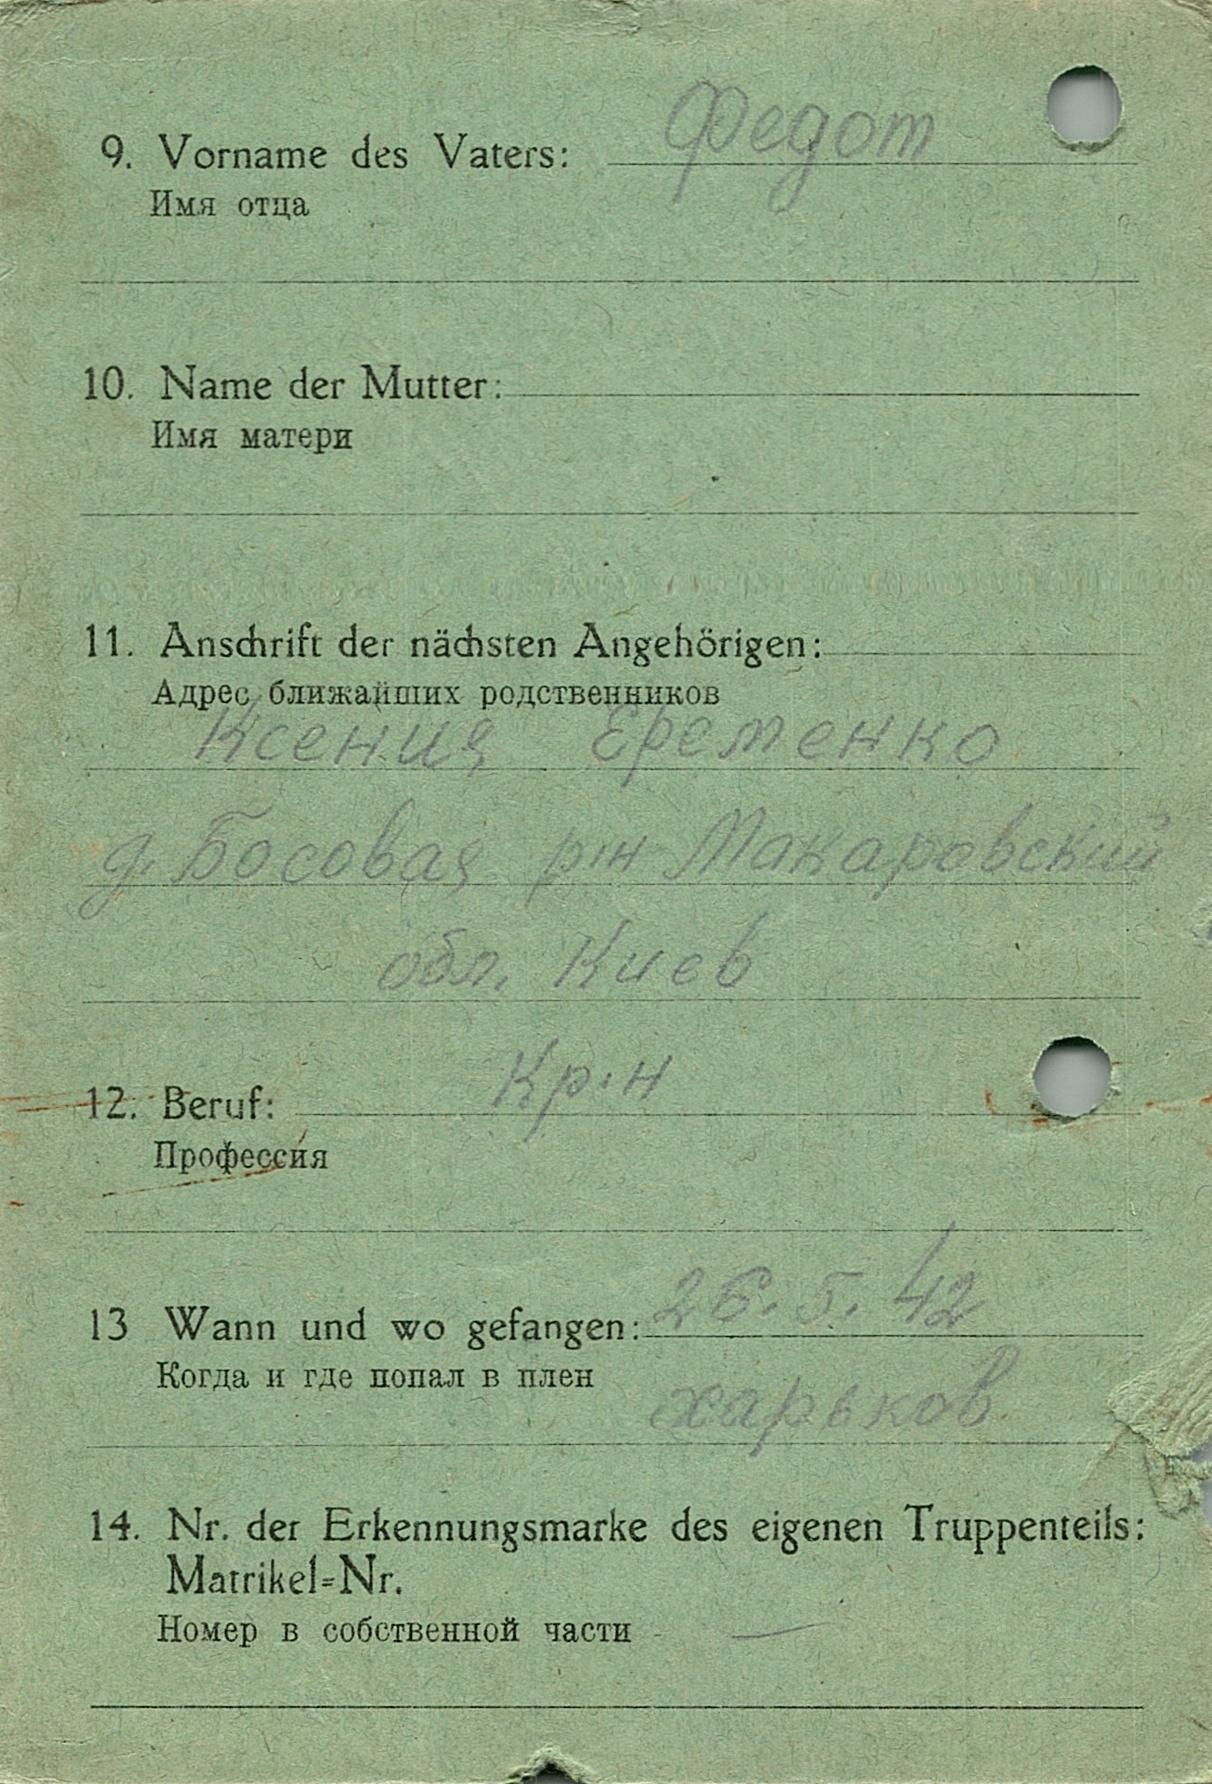 9. Vorname des Vaters: Федот
Имя отца
10. Name der Mutter:
Имя матери
11. Anschrift der nächsten Angehörigen:
Адрес ближайших родственников
Ксения Еременко
д. Босовая р-н Макаровский
обл. Киев
12. Beruf: Кр-н
Профессия
13 Wann und wo gefangen: 26.5.42
Когда и где попал в плен
харьков
14. Nr. der Erkennungsmarke des eigenen Truppenteils:
Matrikel=Nr.
Номер в собственной части -